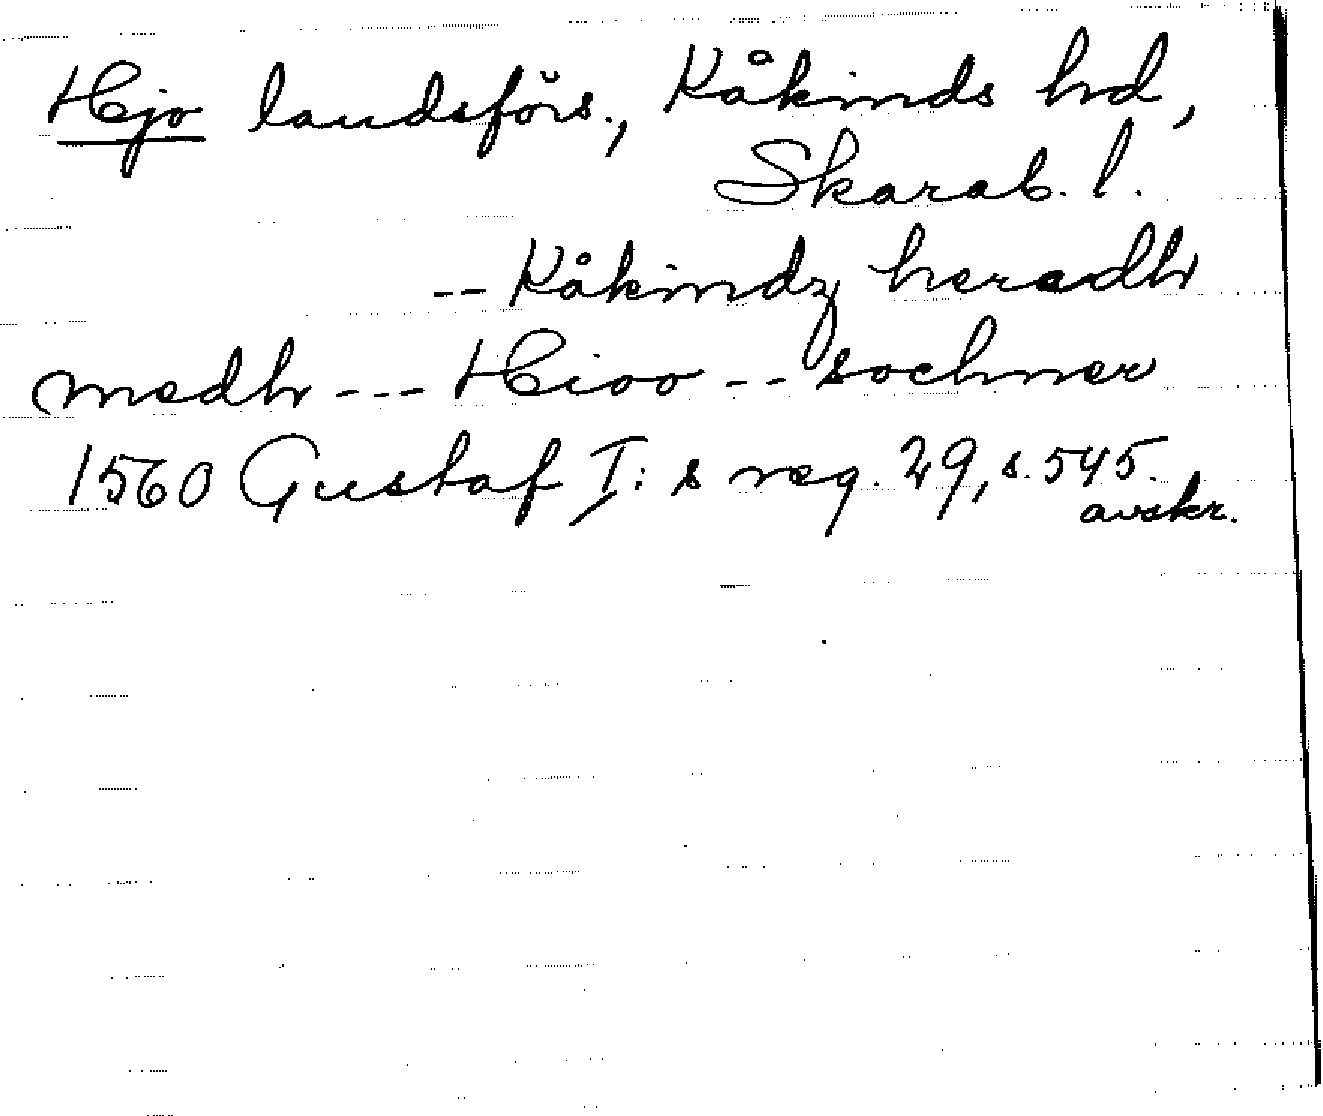 Hjo landsförs., Kåkinds hrd,
Skarab. l.
-- Kåkindz heradh
medh --- Hioo -- sochner
1560 Gustaf I:s reg. 29, s. 545.
avskr.